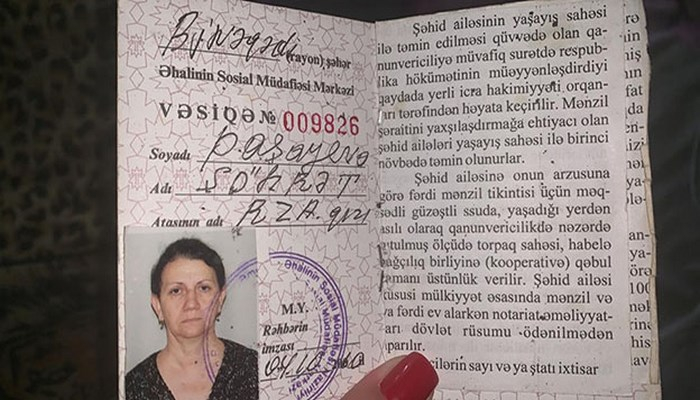 Binəqədi
(rayon) şəhər
Əhalinin Sosial Müdafiəsi Mərkəzi
VƏSİQƏ № 009826
Soyadı Paşayeva
Adı ŞÖHRƏT
Atasının adı RZA qızı
M.Y.
Rəhbərin
imzası
Əhalinin Sosial Müdafiəsi
Şəhid ailəsinin yaşayış sahəsi
ilə təmin edilməsi qüvvədə olan qa-
nunvericiliyə müvafiq surətdə respub-
lika hökümətinin müəyyənləşdirdiyi
qaydada yerli icra hakimiyyəti orqan-
arı tərəfindən həyata keçirilir. Mənzil
şəraitini yaxşılaşdırmağa ehtiyacı olan
şəhid ailələri yaşayış sahəsi ilə birinci
növbədə təmin olunurlar.
Şəhid ailəsinə onun arzusuna
görə fərdi mənzil tikintisi üçün məq-
sədli güzəştli ssuda, yaşadığı yerdən
asılı olaraq qanunvericilikdə nəzərdə
utulmuş ölçüdə torpaq sahəsi, habelə
bağçılıq birliyinə (kooperativə) qəbul
zamanı üstünlük verilir. Şəhid ailəsi
xüsusi mülkiyyət əsasında mənzil və
ya fərdi ev alarkən notariat əməliyyat-
arı dövlət rüsumu ödənilmədən
aparılır.
çilərin sayı və ya ştatı ixtisar